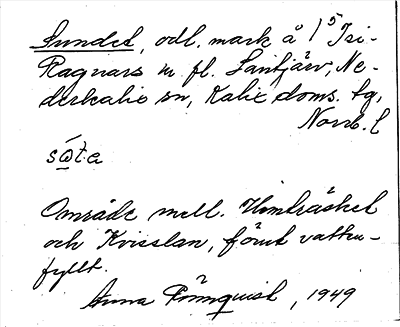 Sundet, odl. mark å 1⁵ Isi-
Ragnars m. fl. Lantjärv, Ne-
derkalix sn, Kalix doms. tg,
Norrb. l
sωta
Område mell. Hemträsket
och Kvisslan, förut vatten-
fyllt.
Anna Rönnquist, 1949